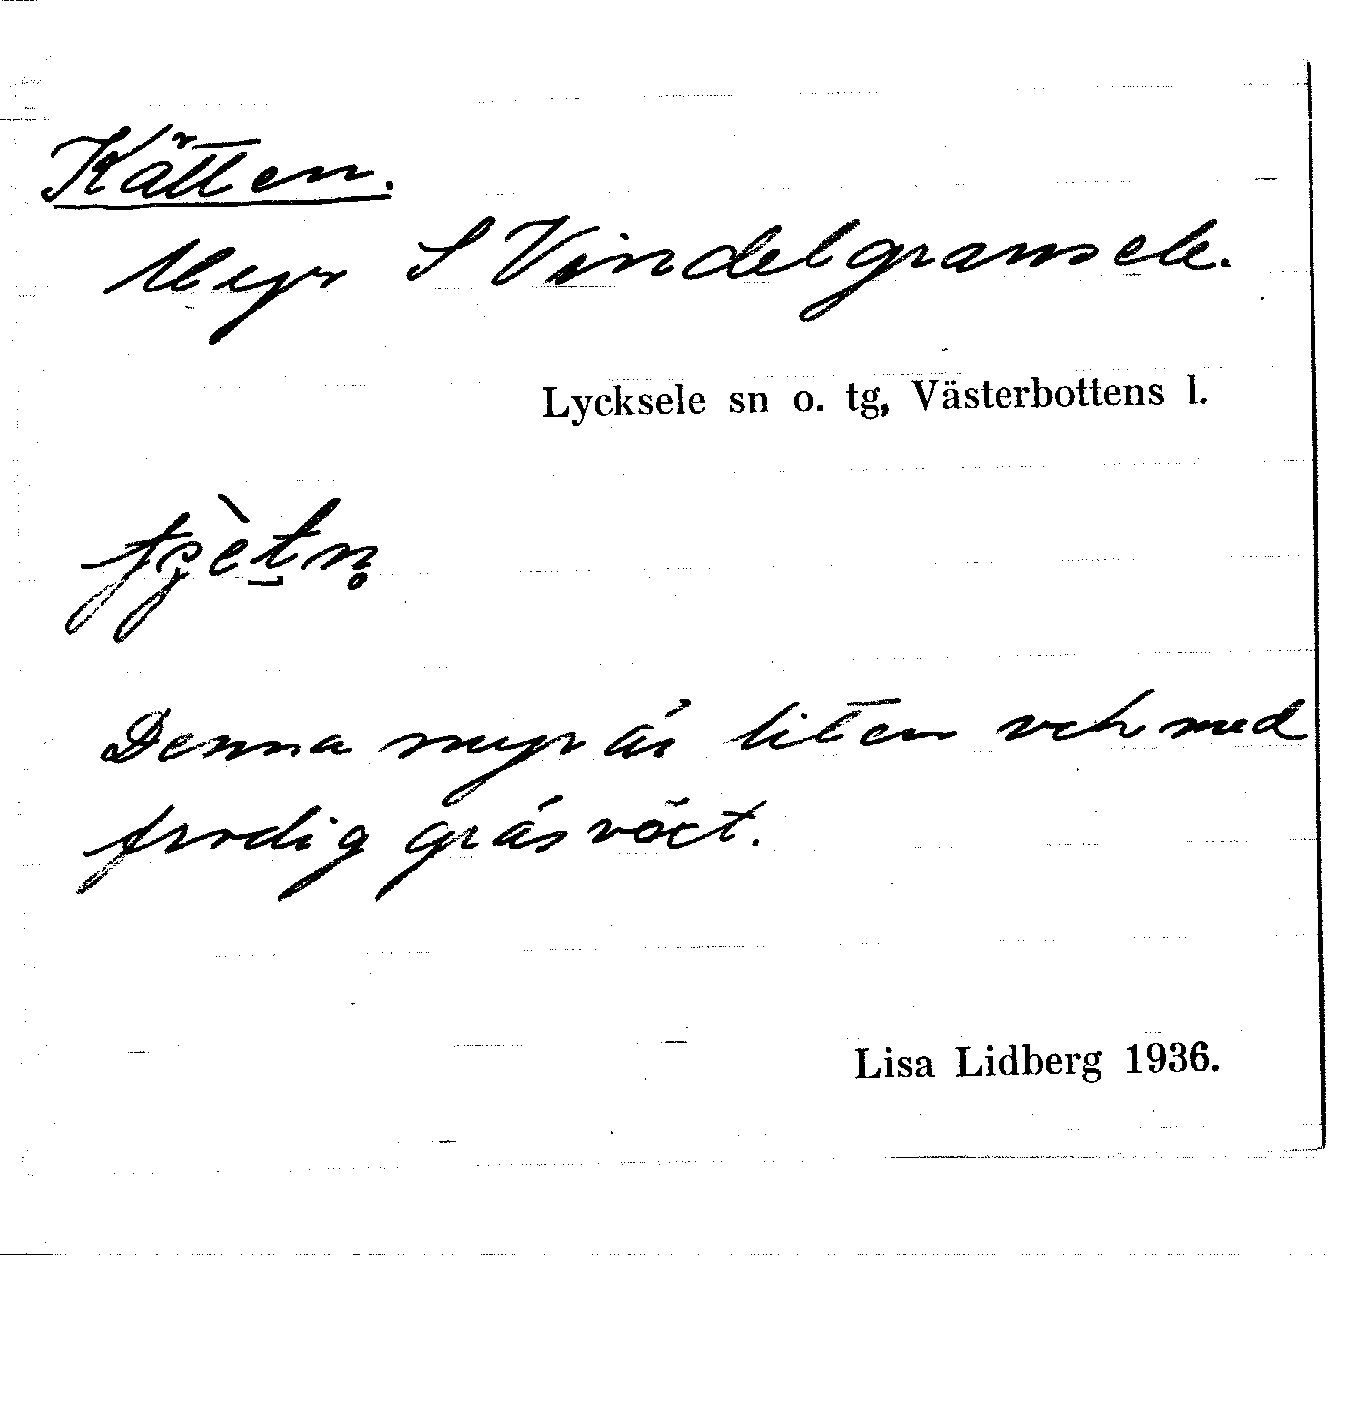 Kätten.
Myr S Vindelgransele.
Lycksele sn o. tg, Västerbottens l.
Denna myr är liten och med
frodig gräsväxt.
Lisa Lidberg 1936.